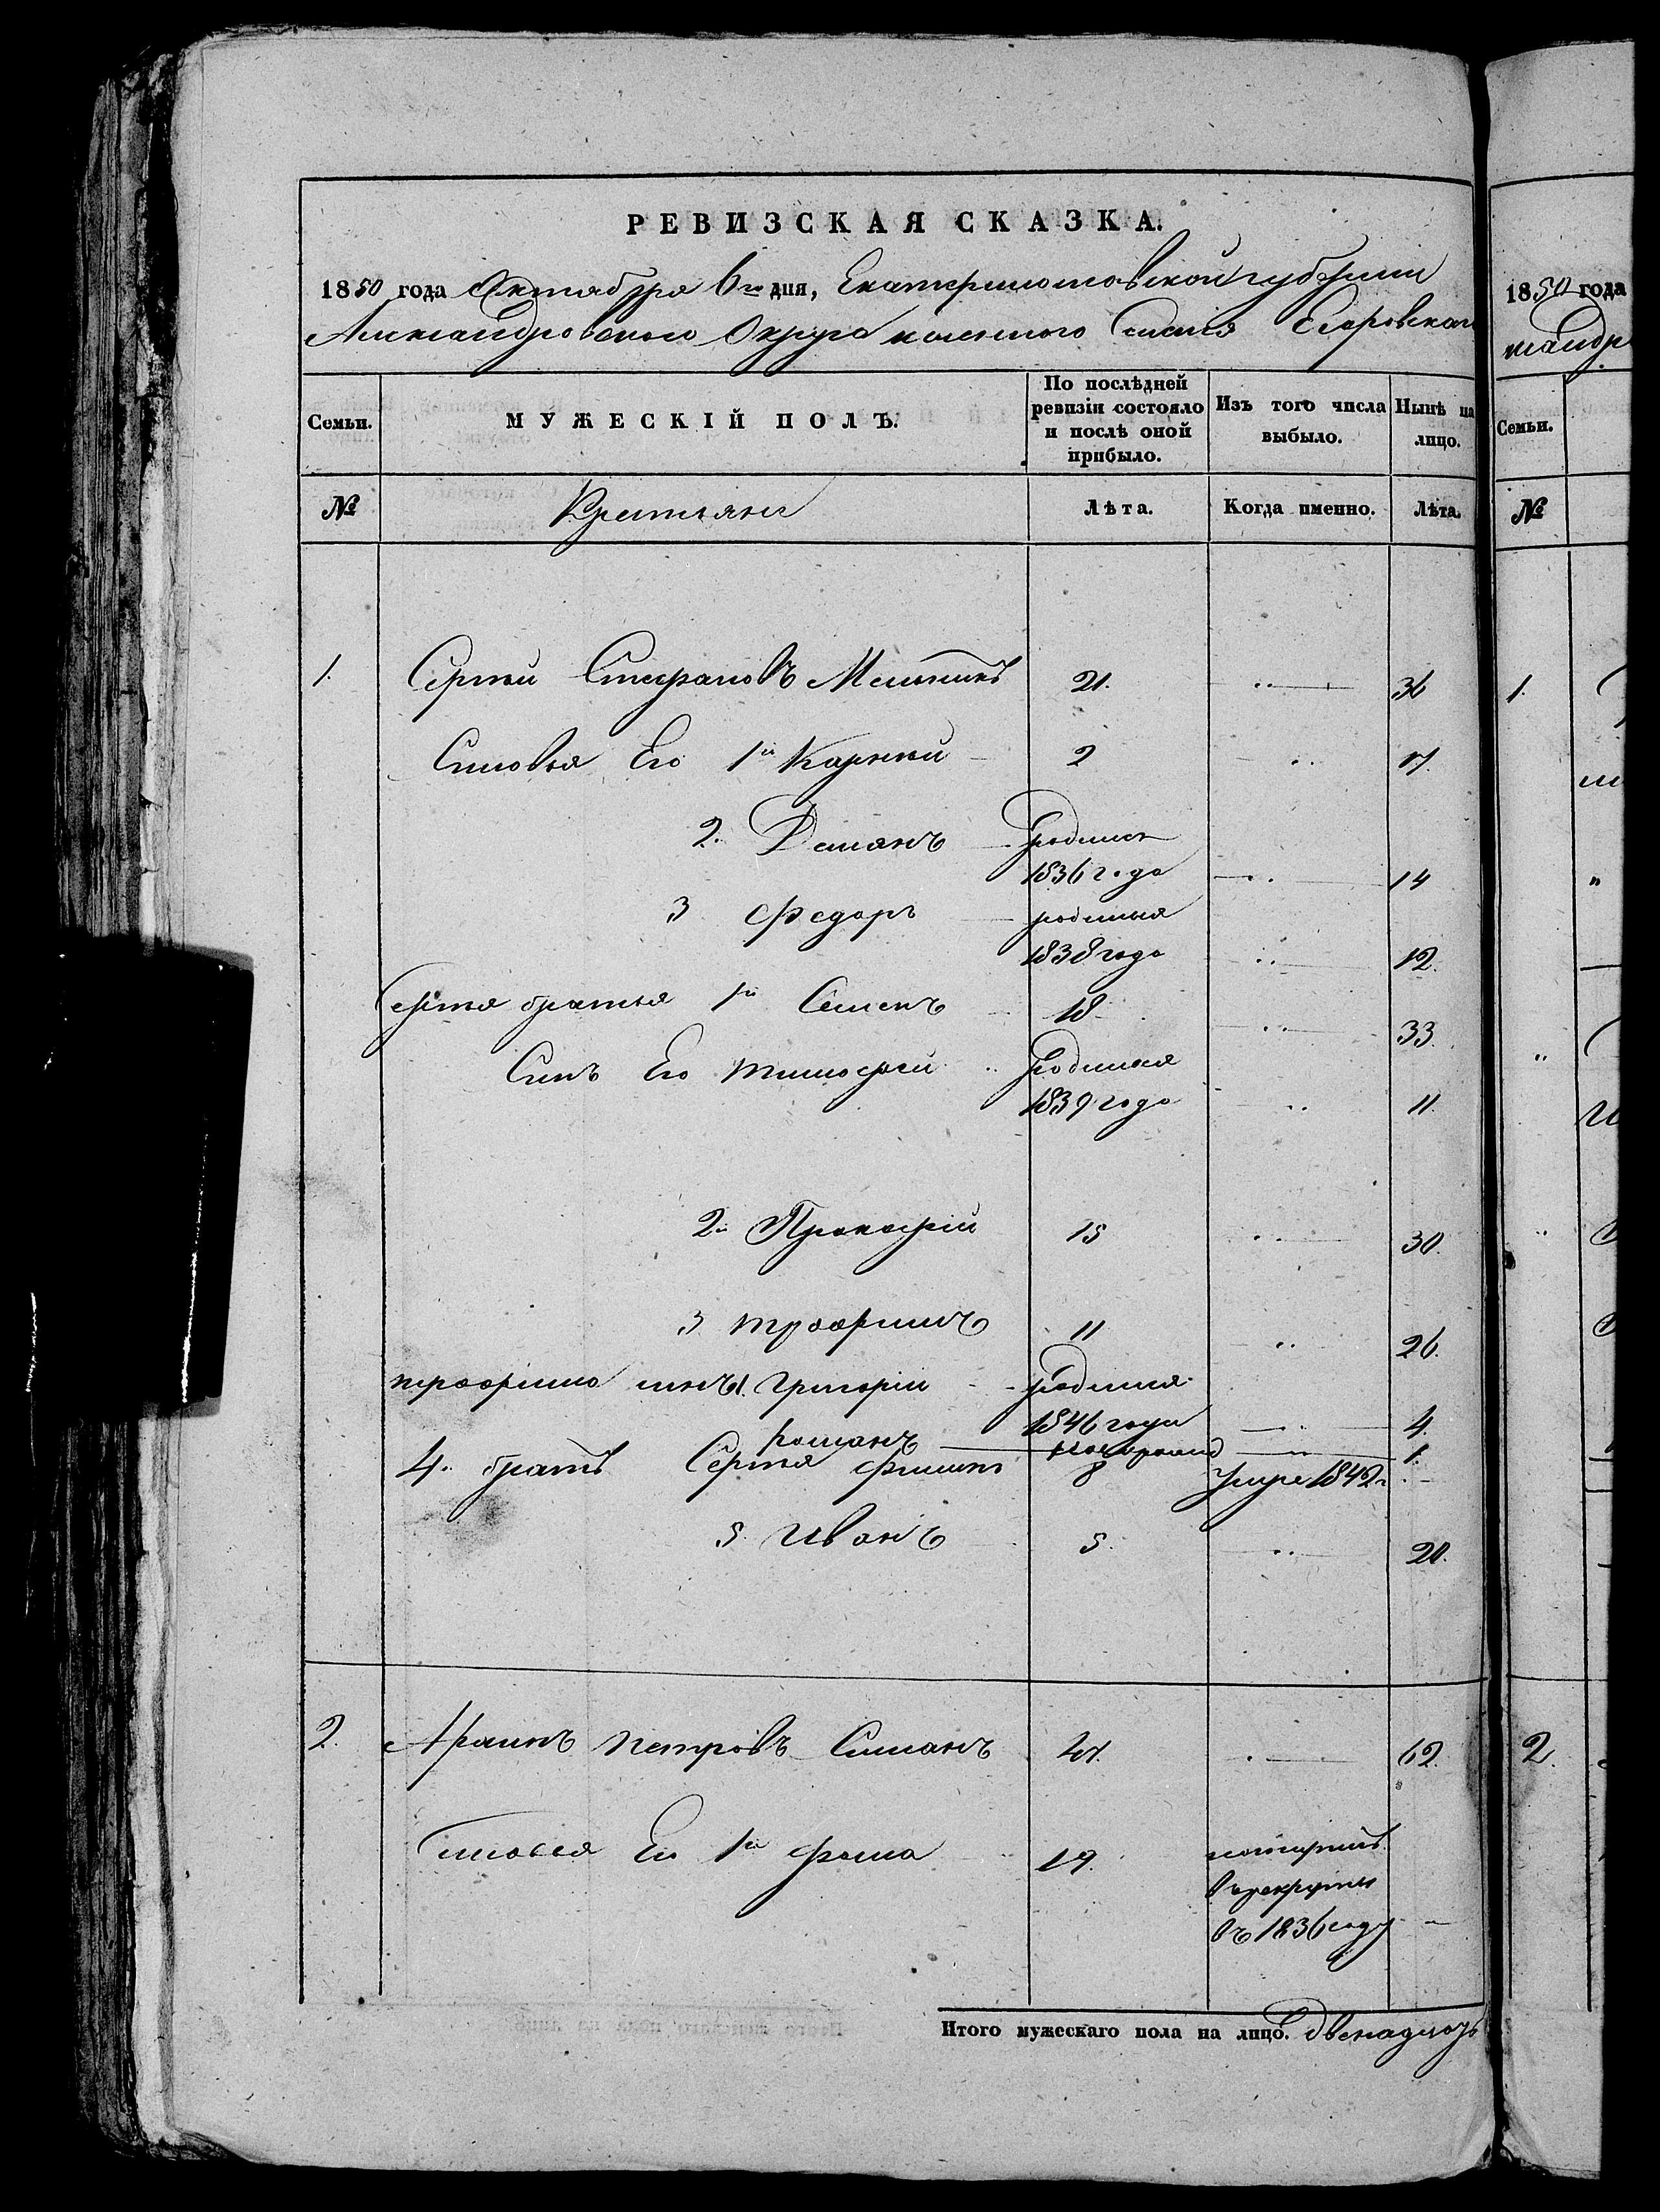 РЕВИЗСКАЯ СКАЗКА.
1850 года Октября 6го дня, Екатеринославской губернии
Александровского Округа казенного
1850 года
Семьи. МУЖЕСКІЙ ПОЛЪ. По послѣдней ревизіи состояло и послѣ оной прибыло. Изъ того числа выбыло. Нынѣ на лицо.
Семьи.
№ Крестьяне Лѣта. Когда именно. Лѣта.
№
1. Сергѣй Степановъ Мельникъ 21. 36
1.
Сыновья Его 1й Карнѣй 2 17.
2. Демянъ родился
1836 года 14
3 Федоръ родился
1838 года 12.
Сергѣя братья 1й Семенъ 18 33.
Сынъ Его Тимофей родился
1839 года 11.
2й Прокофій 15 30.
3 трофимъ 11 26.
трофима сынъ 1. Григорій родился
1846 года 4.
романъ 1.
4. братъ Сергѣя Филипъ 8 Умре 1842 г.
5. Иванъ 5. 20.
2. Петровъ 47. 62.
2.
Сыновья Его 1й Фома 19.
въ рекруты
въ 1836 году
Итого мужескаго пола на лицо. двенадцать